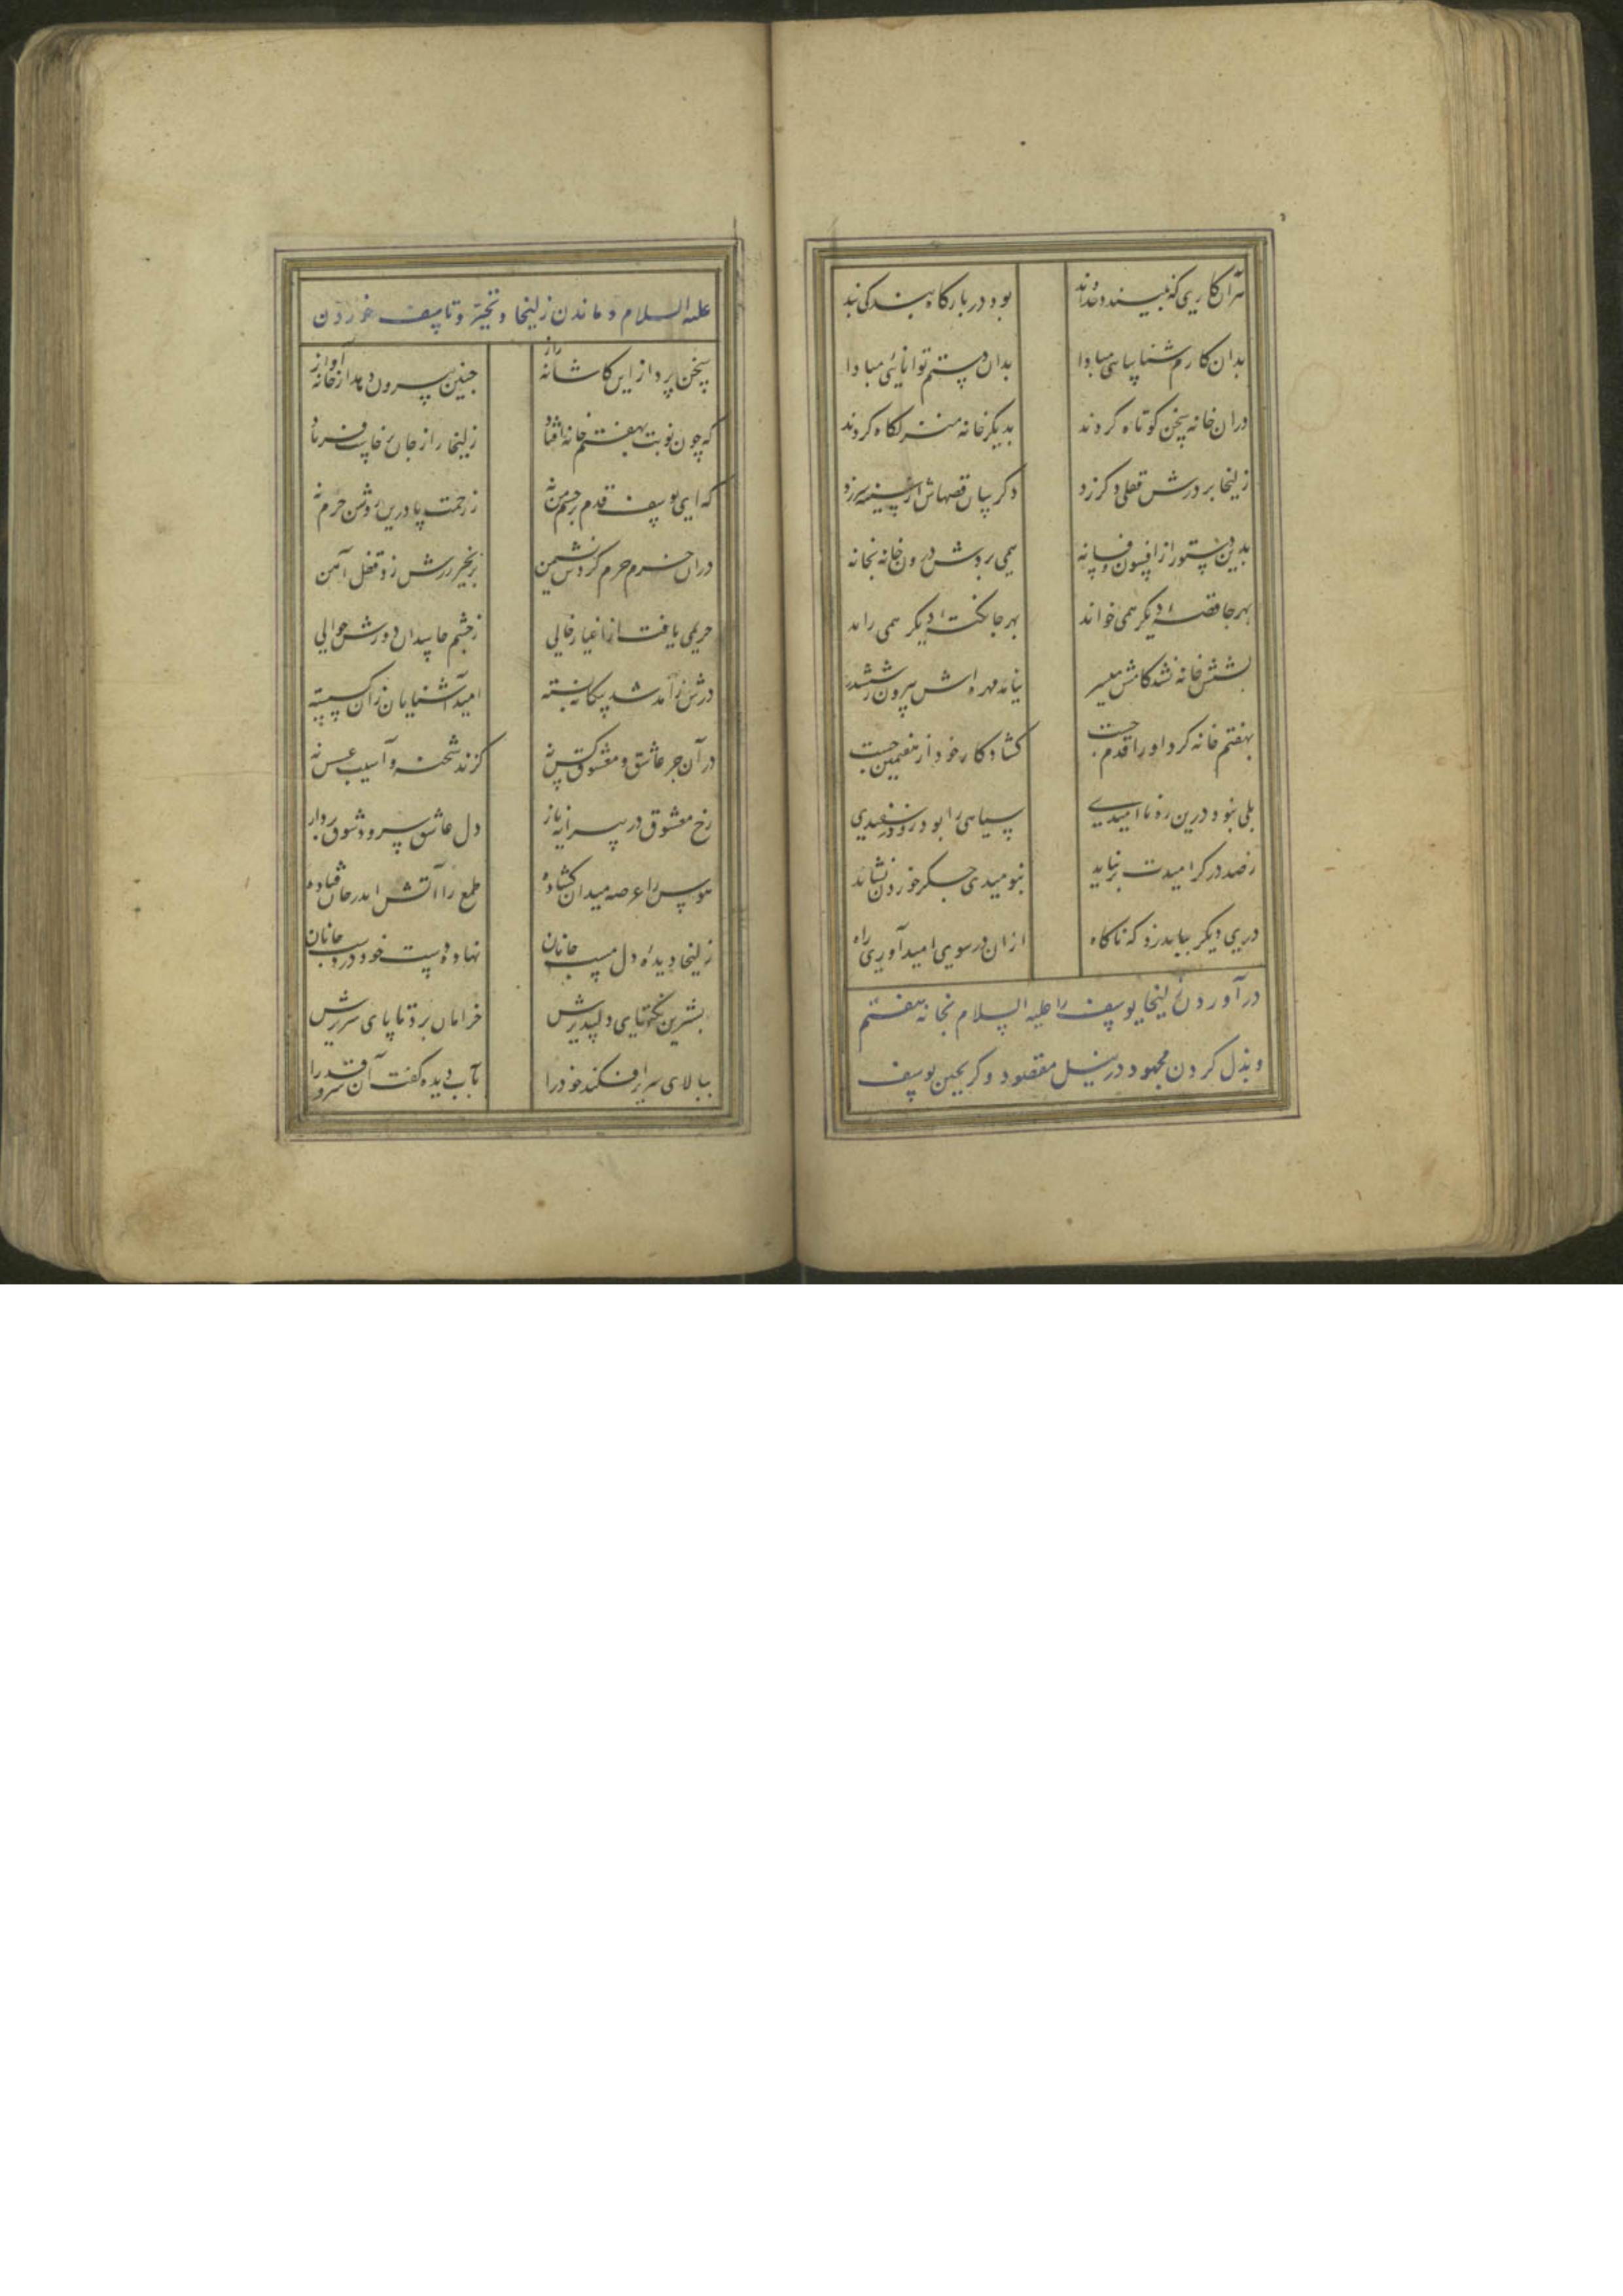 هر آن کاری که نپسندد خداوند بود در بارگاه بندگی بند
بدان کارم شناسایی مبادا بدان دستم توانایی مبادا
در آن خانه سخن کوتاه کردند بدیگر خانه منزلگاه کردند
زلیخا بر درش قفلی دگر زد دگر سان قصهاش از سینه سر زد
بدین دستور از افسون و فسانه همی بردش درون خانه بخانه
بهر جا قصهٔ دیگر همی خواند بهر جا نکتهٔ دیگر همی راند
بشش خانه نشد کامش میسر نیامد مهره‌اش بیرون ز ششدر
بهفتم خانه کرد او را قدم چست گشاد کار خود از هفتمین جست
بلی نبود درین ره ناامیدی سیاهی را بود رو در سفیدی
ز صد در گر امیدت بر نیاید بنومیدی جگر خوردن نشاید
دری دیگر بباید زد که ناگاه از آن در سوی امید آوری راه
در آوردن زلیخا یوسف را علیه السلام بخانه هفتم
و بذل کردن مجهود در نیل مقصود و گریختن یوسف
علیه السلام و ماندن زلیخا و تحیر و تاسف خوردن
سخن پرداز این کاشانه راز چنین بیرون دهد از خانه آواز
که چون نوبت بهفتم خانه افتاد زلیخا را ز جان برخاست فریاد
که ای یوسف قدم بر چشم من نه ز رحمت پا درین روشن حرم نه
در آن خرم حرم کردش نشیمن بزنجیر درش زد قفل آهن
حریمی یافت از اغیار خالی ز چشم حاسدان دورش حوالی
درش ز آمد شد بیگانه بسته امید آشنایان زان گسسته
در آن جز عاشق و معشوق کس نه گزند شحنه و آسیب عسس نه
رخ معشوق در پیرایه ناز دل عاشق سرود شوق پرداز
هوس را عرصه میدان گشاده طمع را آتش اندر جان فتاده
زلیخا دیدهٔ دل مست جانان نهاده دست خود در دست جانان
بشیرین نکتهای دلپذیرش خرامان برد تا پای سریرش
ببالای سریر افکند خود را بآب دیده گفت آن سرو قد را